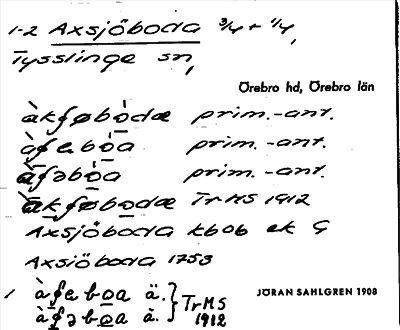 1-2 Axsjöboda 3/4 + 1/4,
Tysslinge sn,
Örebro hd, Örebro län
àkʃøbòdæ prim.-ant.
àʃebòa prim.-ant.
æ̀ʃəbòa prim.-ant.
æ̀kʃøbodæ TrMS 1912
Axsjöboda kbob ek G
Axsiöboda 1753
1 àʃeboa ä. } TrMS
àʃəboa à. 1912
JÖRAN SAHLGREN 1908